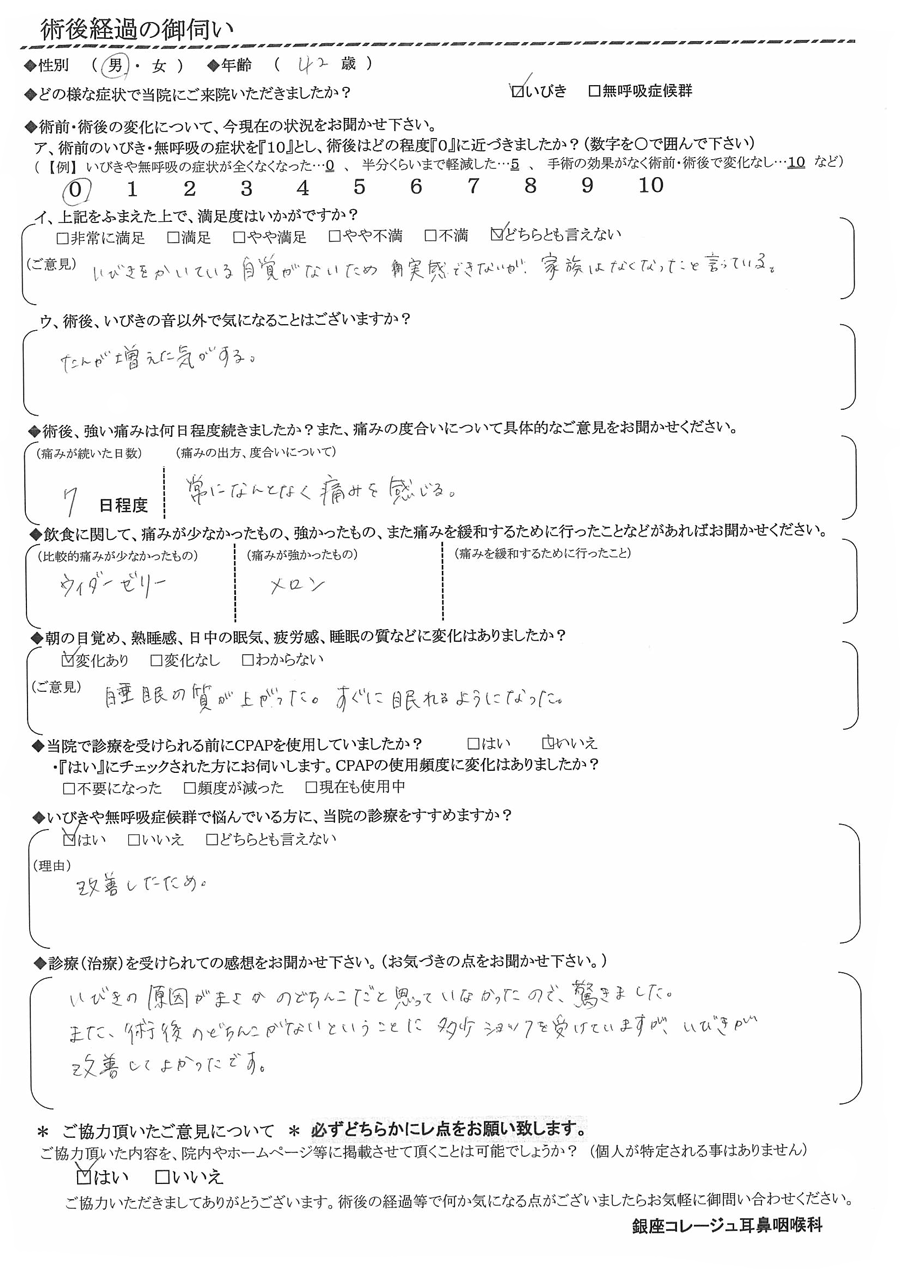 術後経過の御伺い
◆性別 (男・女) ◆年齢 (42歳)
◆どの様な症状で当院にご来院いただきましたか? ☑いびき □無呼吸症候群
◆術前・術後の変化について、今現在の状況をお聞かせ下さい。
ア、術前のいびき・無呼吸の症状を『10』とし、術後はどの程度『0』に近づきましたか?(数字を〇で囲んで下さい)
(【例】いびきや無呼吸の症状が全くなくなった…0 、 半分くらいまで軽減した…5 、 手術の効果がなく術前・術後で変化なし…10 など)
0 1 2 3 4 5 6 7 8 9 10
イ、上記をふまえた上で、満足度はいかがですか?
□非常に満足 □満足 □やや満足 □やや不満 □不満 ☑どちらとも言えない
(ご意見) いびきをかいている自覚がないため 実感できないが、家族はなくなったと言っている。
ウ、術後、いびきの音以外で気になることはございますか?
たんが増えた気がする。
◆術後、強い痛みは何日程度続きましたか?また、痛みの度合いについて具体的なご意見をお聞かせください。
(痛みが続いた日数) (痛みの出方、度合いについて)
7 日程度 常になんとなく痛みを感じる。
◆飲食に関して、痛みが少なかったもの、強かったもの、また痛みを緩和するために行ったことなどがあればお聞かせください。
(比較的痛みが少なかったもの) (痛みが強かったもの) (痛みを緩和するために行ったこと)
ウイダーゼリー メロン
◆朝の目覚め、熟睡感、日中の眠気、疲労感、睡眠の質などに変化はありましたか?
☑変化あり □変化なし □わからない
(ご意見) 睡眠の質が上がった。すぐに眠れるようになった。
◆当院で診療を受けられる前にCPAPを使用していましたか? □はい ☑いいえ
・『はい』にチェックされた方にお伺いします。CPAPの使用頻度に変化はありましたか?
□不要になった □頻度が減った □現在も使用中
◆いびきや無呼吸症候群で悩んでいる方に、当院の診療をすすめますか?
☑はい □いいえ □どちらとも言えない
(理由)
改善したため。
◆診療(治療)を受けられての感想をお聞かせ下さい。(お気づきの点をお聞かせ下さい。)
いびきの原因がまさかのどちんこだと思っていなかったので、驚きました。
また、術後のどちんこがないということに多少ショックを受けていますが、いびきが
改善してよかったです。
* ご協力頂いたご意見について * 必ずどちらかにレ点をお願い致します。
ご協力頂いた内容を、院内やホームページ等に掲載させて頂くことは可能でしょうか? (個人が特定される事はありません)
☑はい □いいえ
ご協力いただきましてありがとうございます。術後の経過等で何か気になる点がございましたらお気軽に御問い合わせください。
銀座コレージュ耳鼻咽喉科